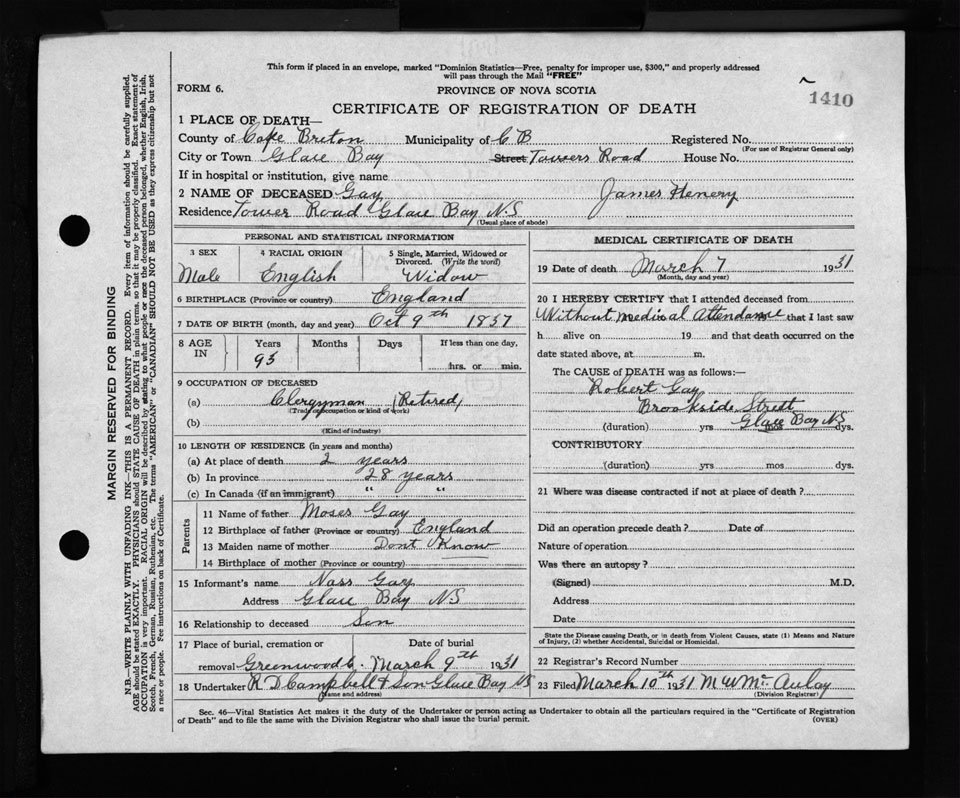 This form if placed in an envelope, marked "Dominion Statistics—Free, penalty for improper use, $300," and properly addressed
will pass through the Mail "FREE"
FORM 6.
PROVINCE OF NOVA SCOTIA
1410
CERTIFICATE OF REGISTRATION OF DEATH
1 PLACE OF DEATH—
County of Cape Breton Municipality of C B Registered No.
(For use of Registrar General only)
City or Town Glace Bay Street Towers Road House No.
If in hospital or institution, give name
2 NAME OF DECEASED Gay James Henery
Residence Tower Road Glace Bay N.S
(Usual place of abode)
PERSONAL AND STATISTICAL INFORMATION
3 SEX 4 RACIAL ORIGIN 5 Single, Married, Widowed or
Divorced. (Write the word)
Male English Widow
6 BIRTHPLACE (Province or country) England
7 DATE OF BIRTH (month, day and year) Oct 9th 1837
8 AGE IN Years Months Days If less than one day,
93 hrs. or min.
9 OCCUPATION OF DECEASED
(a) Clergyman (Retired)
(Trade or occupation or kind of work)
(b)
(Kind of industry)
10 LENGTH OF RESIDENCE (in years and months)
(a) At place of death 2 years
(b) In province 28 years
(c) In Canada (if an immigrant) " "
Parents
11 Name of father Moses Gay
12 Birthplace of father (Province or country) England
13 Maiden name of mother Dont Know
14 Birthplace of mother (Province or country)
15 Informant's name Gay
Address Glace Bay NS
16 Relationship to deceased Son
17 Place of burial, cremation or Date of burial
removal Greenwood C. March 9th 1931
18 Undertaker R D Campbell & Son Glace Bay NS
(Name and address)
MEDICAL CERTIFICATE OF DEATH
19 Date of death March 7 1931
(Month, day and year)
20 I HEREBY CERTIFY that I attended deceased from
Without medical Attendance that I last saw
h alive on 19 and that death occurred on the
date stated above, at m.
The CAUSE of DEATH was as follows:—
Robert Gay
Brookside Street
(duration) yrs Glace Bay NS mos dys.
CONTRIBUTORY
(duration) yrs mos dys.
21 Where was disease contracted if not at place of death?
Did an operation precede death? Date of
Nature of operation
Was there an autopsy?
(Signed) M.D.
Address
Date
State the Disease causing Death, or in death from Violent Causes, state (1) Means and Nature
of Injury, (2) whether Accidental, Suicidal or Homicidal.
22 Registrar's Record Number
23 Filed March 10th 1931 M W McAulay
(Division Registrar)
Sec. 46—Vital Statistics Act makes it the duty of the Undertaker or person acting as Undertaker to obtain all the particulars required in the "Certificate of Registration
of Death" and to file the same with the Division Registrar who shall issue the burial permit.
(OVER)
MARGIN RESERVED FOR BINDING
N.B.—WRITE PLAINLY WITH UNFADING INK—THIS IS A PERMANENT RECORD. Every item of information should be carefully supplied.
AGE should be stated EXACTLY. PHYSICIANS should STATE CAUSE OF DEATH in plain terms, so that it may be properly classified. Exact statement of
OCCUPATION is very important. RACIAL ORIGIN will be described by stating to what people or race the deceased person belonged, whether English, Irish,
Scotch, French, German, Russian, Ruthenian, etc. The terms "AMERICAN" or "CANADIAN" SHOULD NOT BE USED as they express citizenship but not
a race or people. See instructions on back of Certificate.